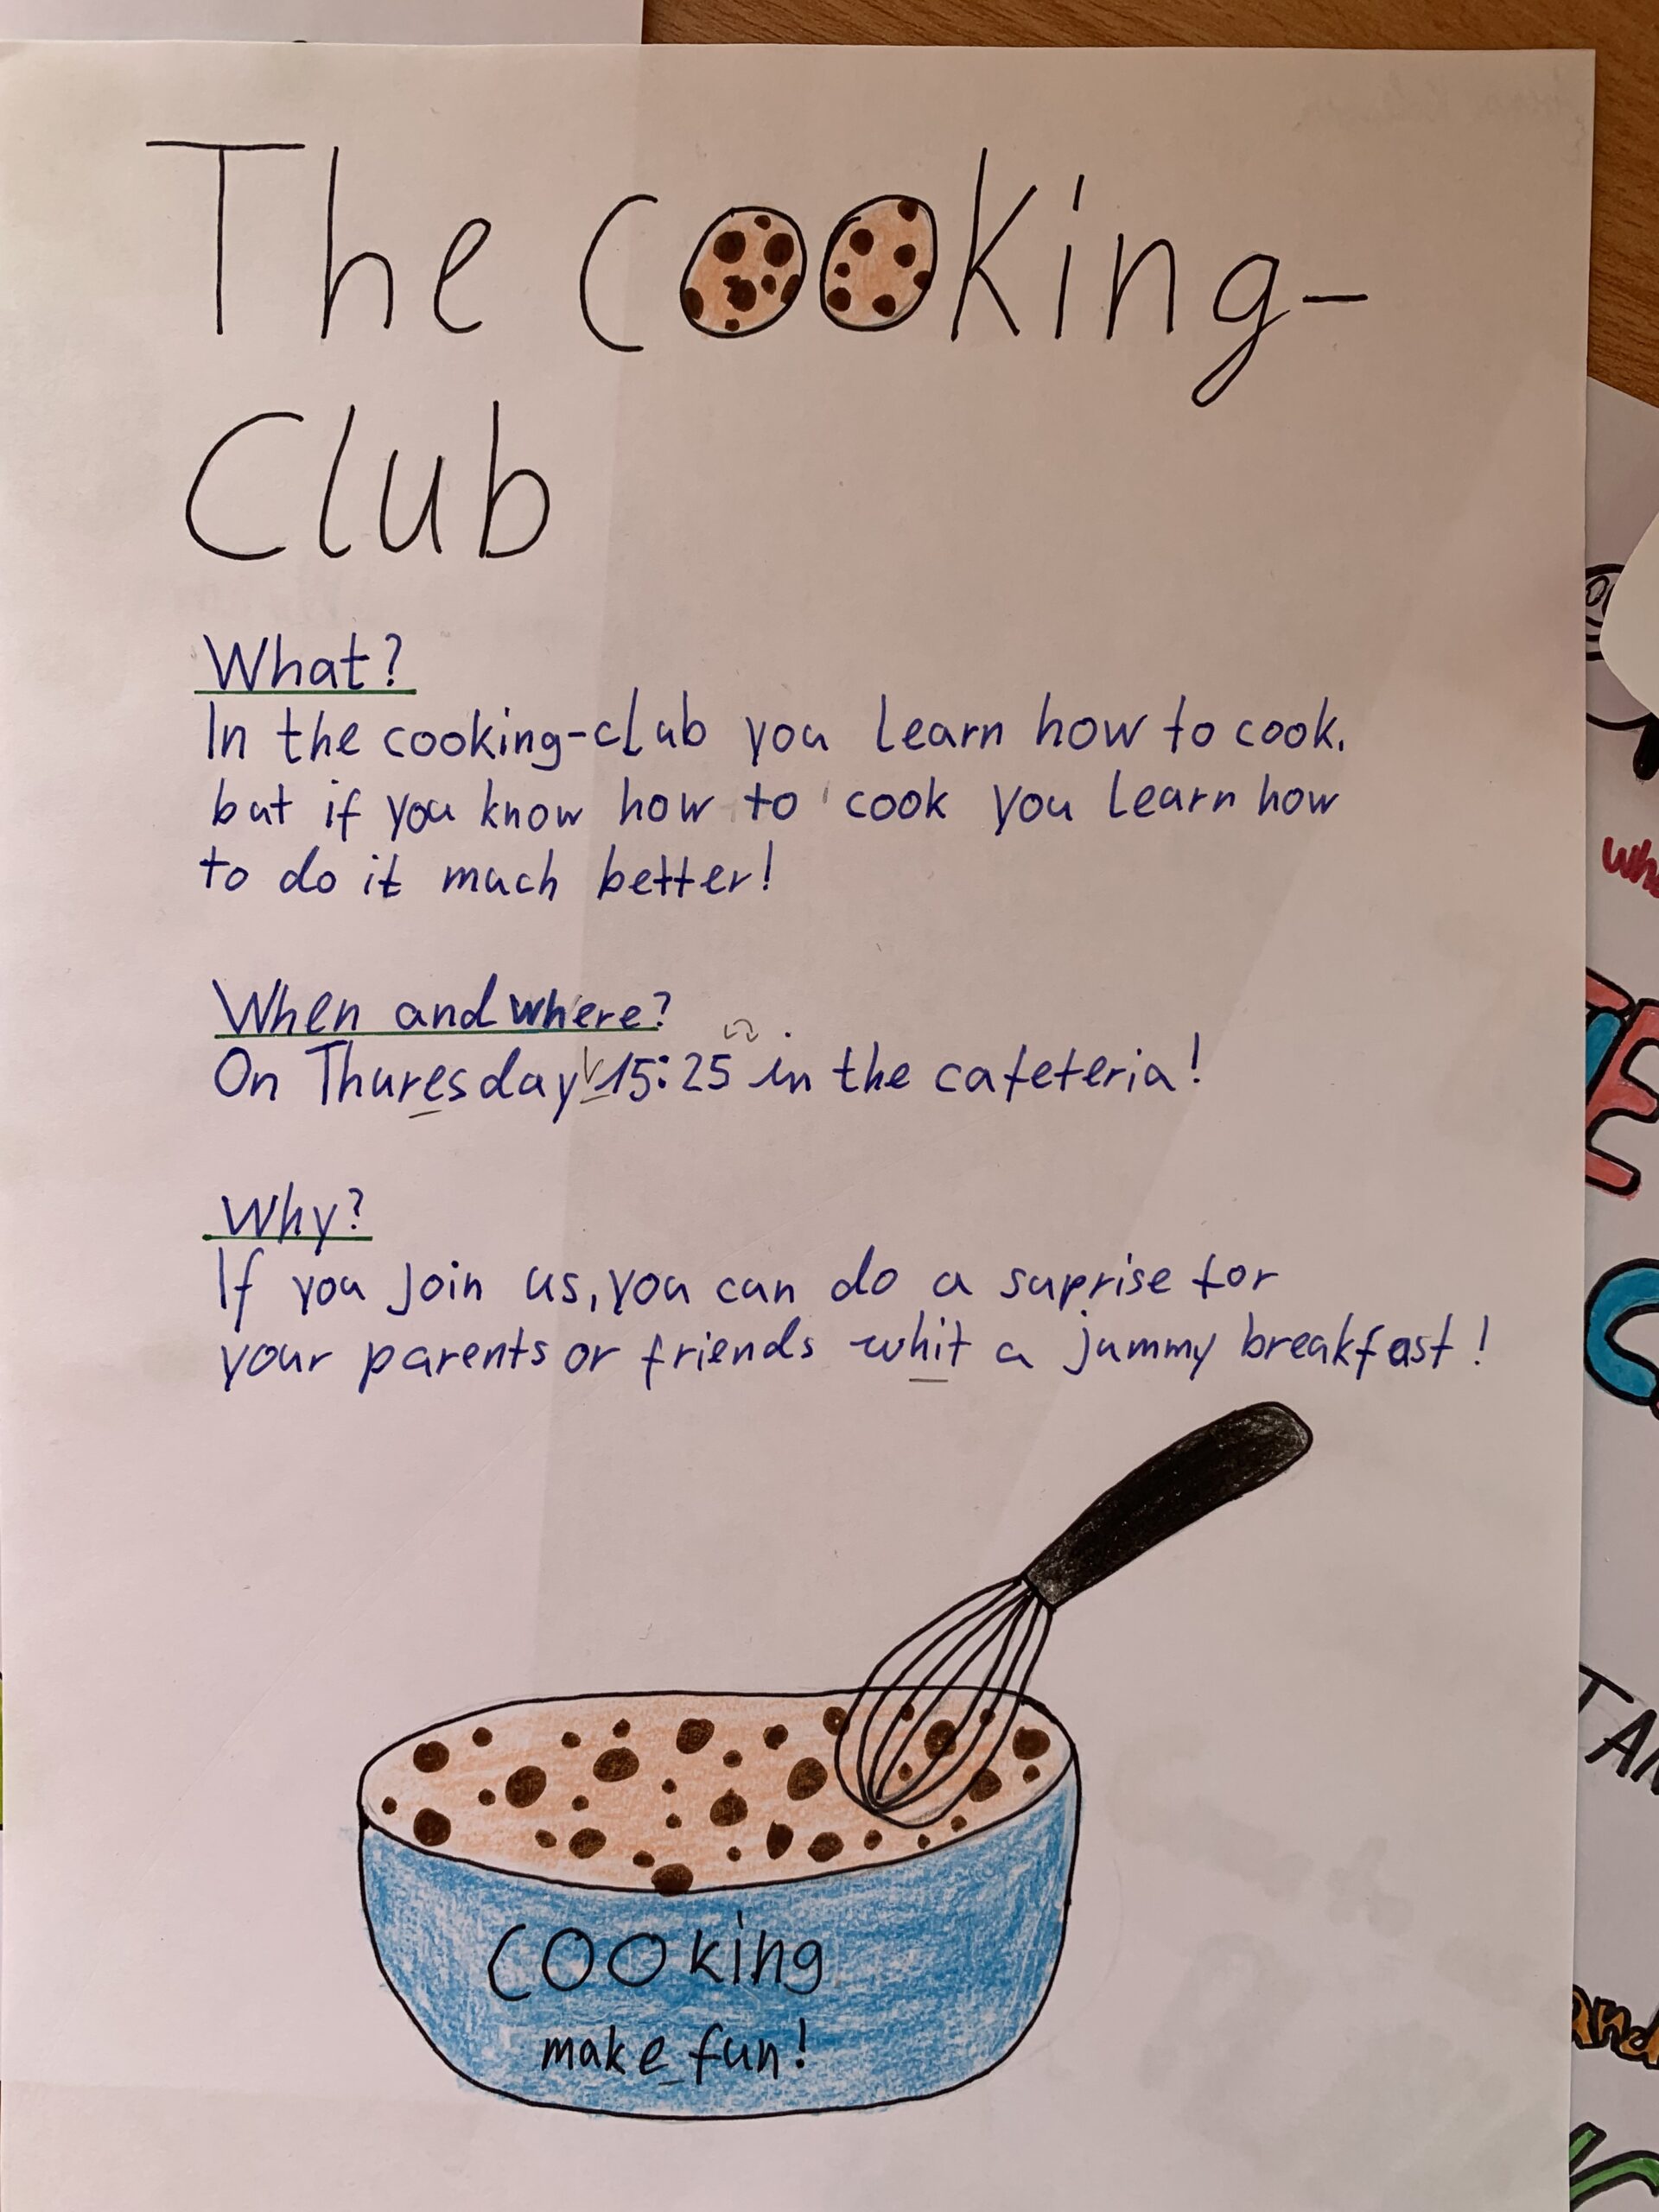 The cooking-
Club
What?
In the cooking-club you learn how to cook.
but if you know how to cook you learn how
to do it much better!
When and where?
On Thuresday 15:25 in the cafeteria!
Why?
If you join us, you can do a suprise for
your parents or friends whit a jummy breakfast!
cooking
make fun!